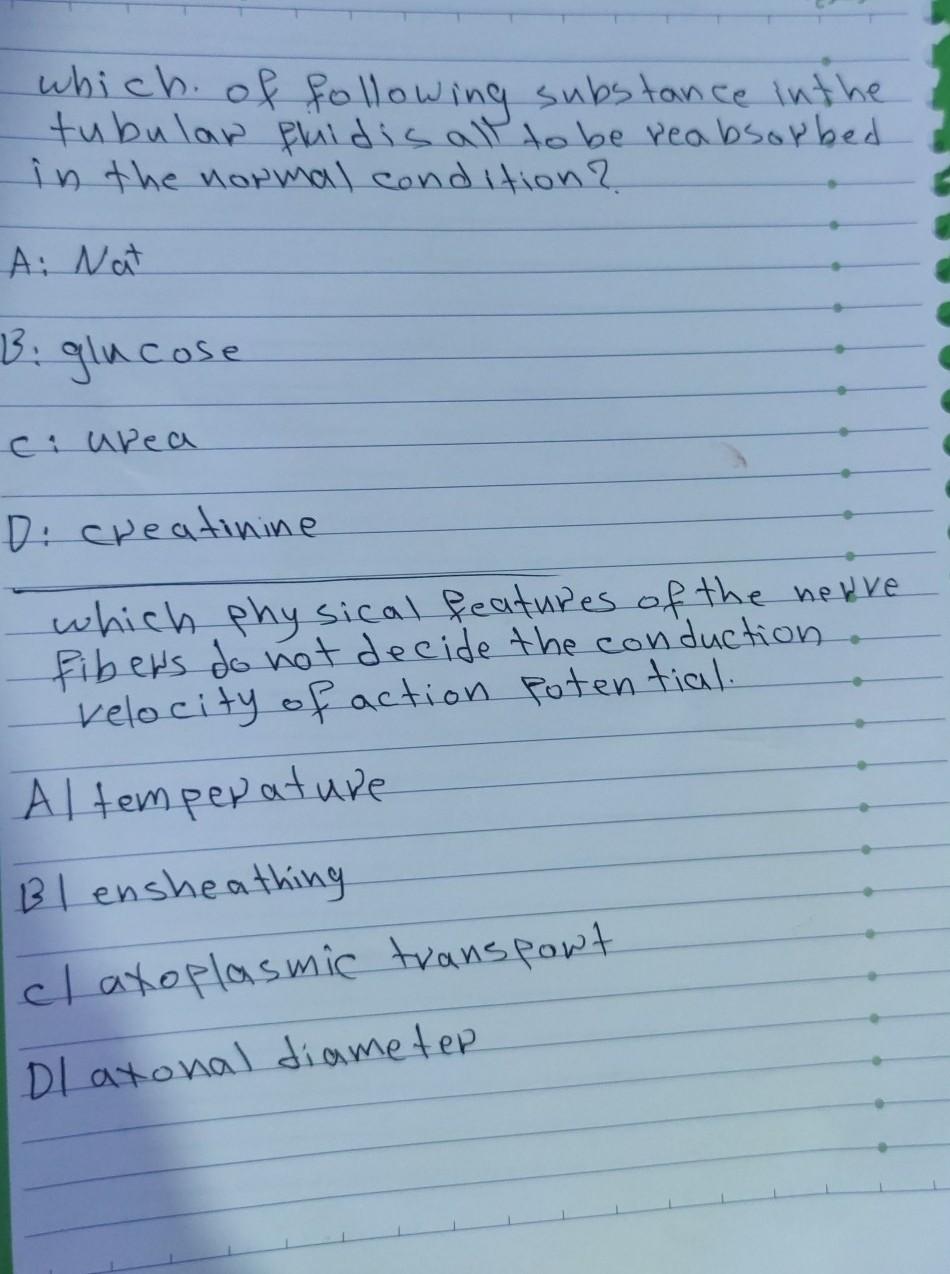 which. of following substance in the
tubular fluid is all to be reabsorbed
in the normal condition?
A: Na+
B: glucose
C: urea
D: creatinine
which physical features of the nerve
fibers do not decide the conduction
velocity of action potential.
A| temperature
B| ensheathing
C| axoplasmic transport
D| axonal diameter